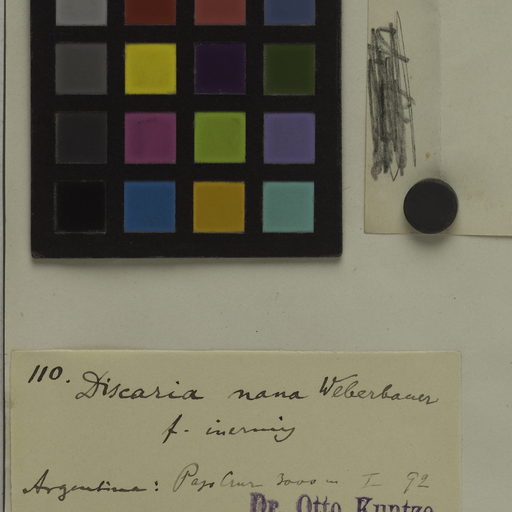 110. Discaria nana Weberbauer
f. inermis
Argentina: Paso Cruz 3000 m I 92
Dr. Otto Kuntze